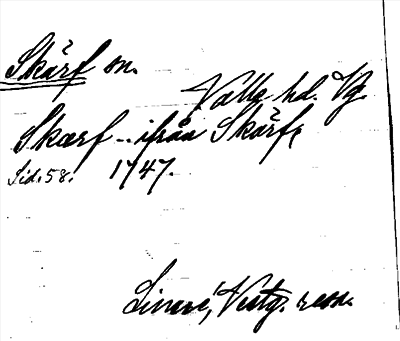 Skärf sn.
Valle hd. Vg.
Skærf -- ifrån Skärfs
Sid. 58. 1747.
Linné, Vestg. resa.